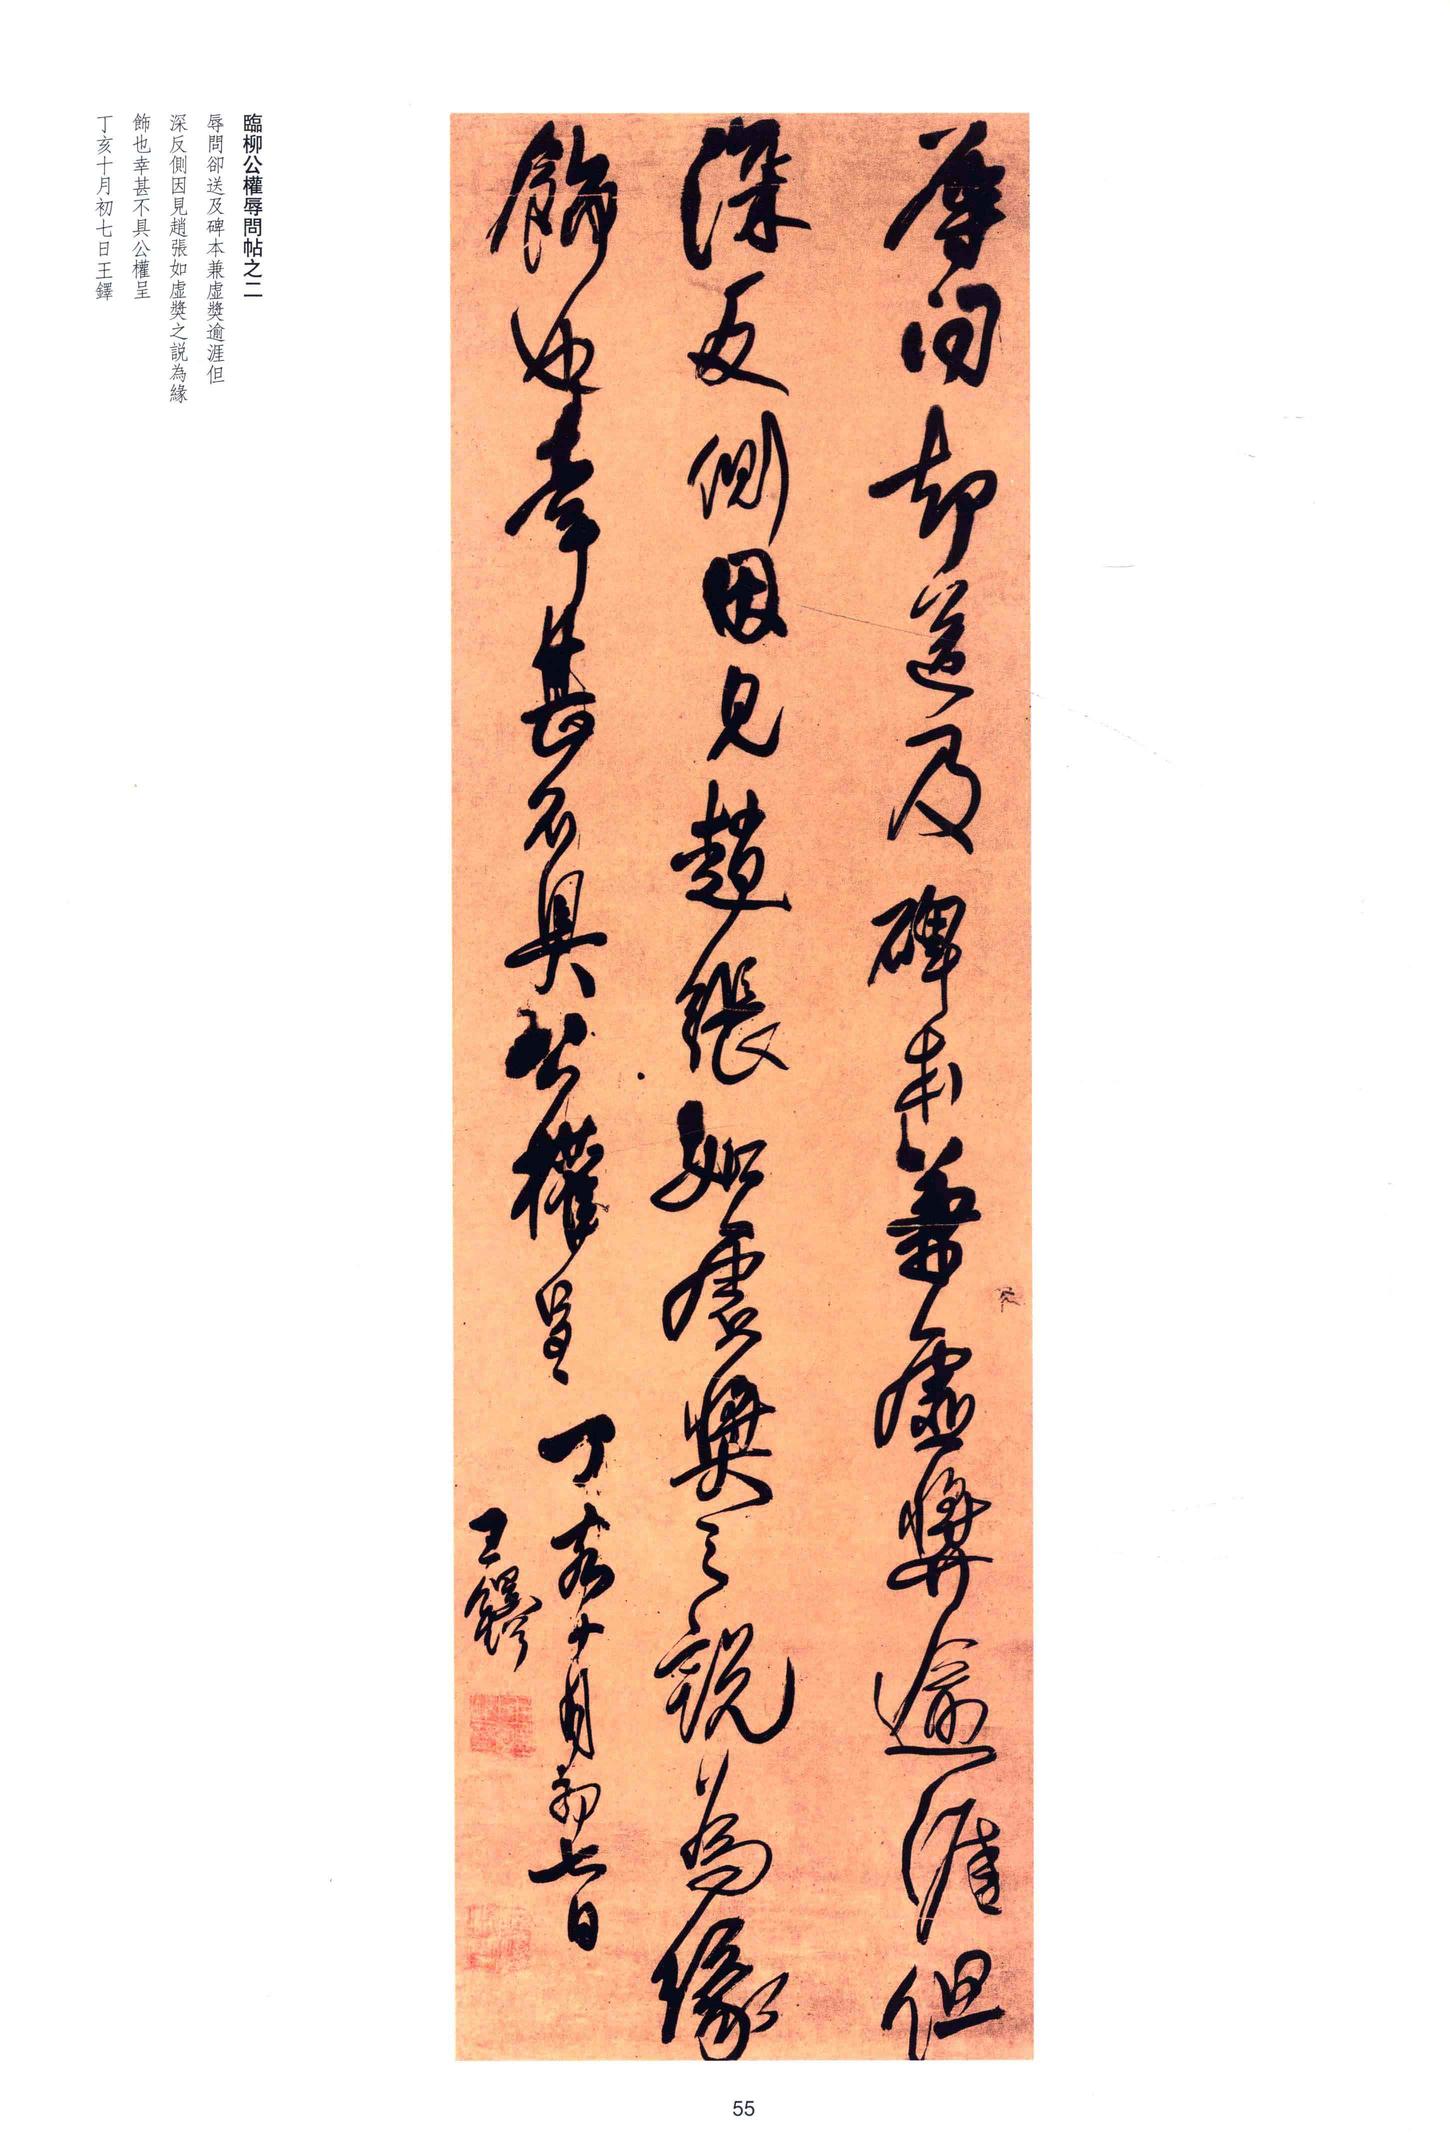 臨柳公權辱問帖之二
辱問卻送及碑本兼虛獎逾涯但
深反側因見趙張如虛獎之説為緣
飾也幸甚不具公權呈
丁亥十月初七日王鐸
辱問卻送及碑本兼虛獎逾涯但
深反側因見趙張如虛獎之説為緣
飾也幸甚不具公權呈 丁亥十月初七日
王鐸
55